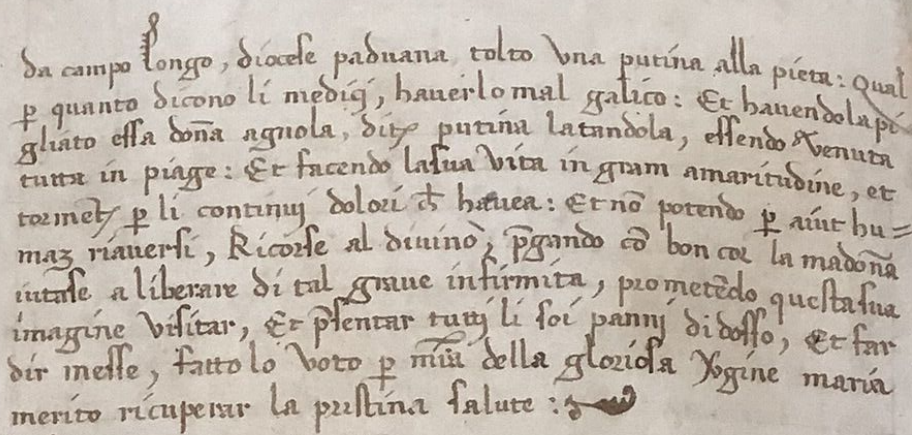 da campo longo, diocese paduana tolto una putina alla pieta: Qual
p quanto dicono li medici, haverlo mal galico: Et havendola pi
gliato essa doña agnola, dita putina latandola, essendo venuta
tutta in piage: Et facendo la sua vita in gram amaritudine, et
tormẽti p li continuj dolori ch havea: Et nõ potendo p aiut hu=
maz riaversi, Ricorse al divino, pgando cõ bon cor la madoña
iutase a liberare di tal grave infirmita, prometẽdo questa sua
imagine visitar, Et psentar tuttj li soi pannj di dosso, Et far
dir messe, fatto lo voto p mīa della gloriosa Vgine maria
merito ricuperar la pristina salute: